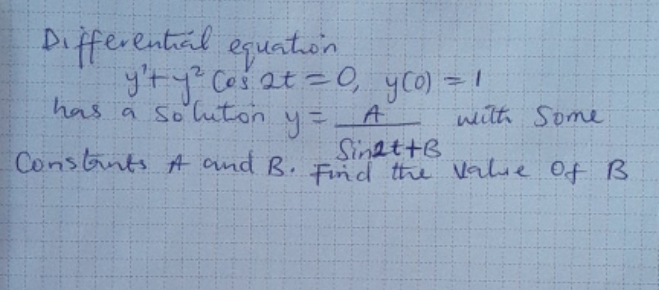 Differential equation
y'+y² Cos 2t = 0, y(0) = 1
has a solution y = A with Some
Sin2t+B
Constants A and B. Find the value of B